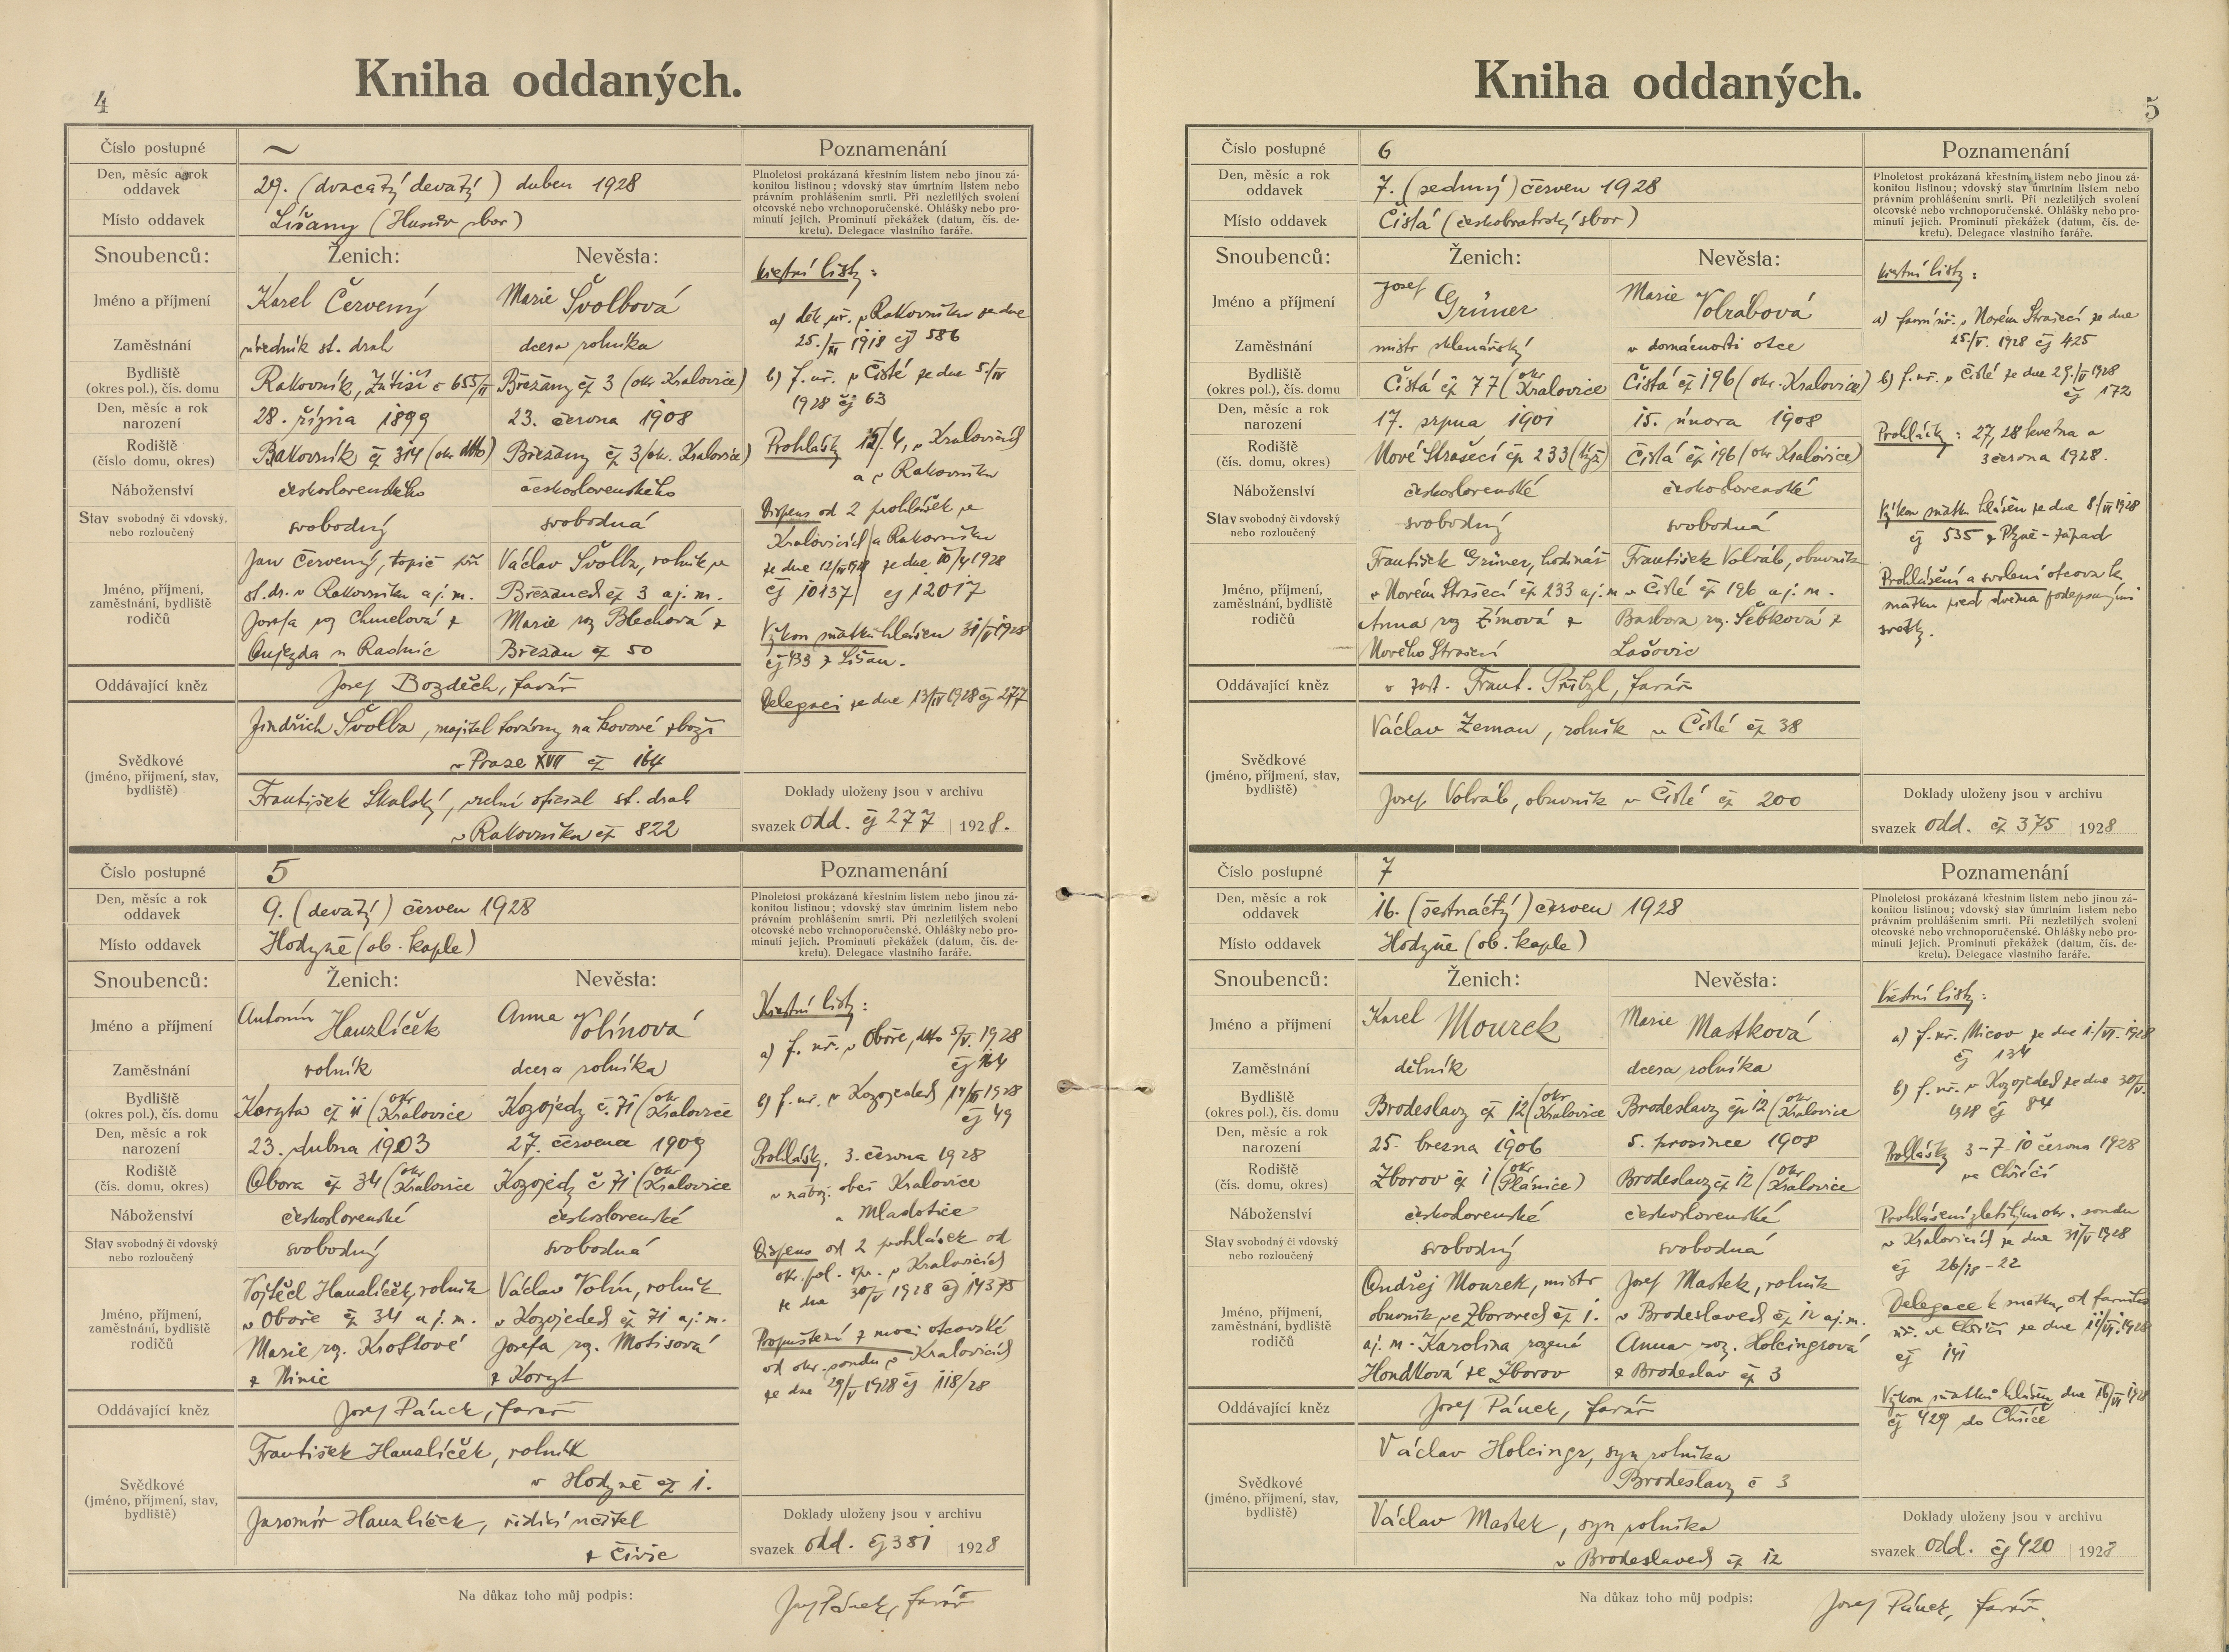 4
Kniha oddaných.
Číslo postupné
~
Poznamenání
Den, měsíc a rok oddavek
29. (dvacátý devátý) duben 1928
Plnoletost prokázaná křestním listem nebo jinou zá-
konitou listinou; vdovský stav úmrtním listem nebo
právním prohlášením smrti. Při nezletilých svolení
otcovské nebo vrchnoporučenské. Ohlášky nebo pro-
minutí jejich. Prominutí překážek (datum, čís. de-
kretu). Delegace vlastního faráře.
Místo oddavek
Lišany (Husův sbor)
Snoubenců:
Ženich:
Nevěsta:
Jméno a příjmení
Karel Červený
Marie Švolbová
Zaměstnání
úředník st. drah
dcera rolníka
Bydliště
(okres pol.), čís. domu
Rakovník, Zátiší č 655/II
Břežany čp 3 (okr Kralovice)
Den, měsíc a rok
narození
28. října 1899
23. června 1908
Rodiště
(číslo domu, okres)
Rakovník čp 314 (okr
Břežany čp 3 (ok. Kralovice)
Náboženství
československého
československého
Stav svobodný či vdovský,
nebo rozloučený
svobodný
svobodná
Jméno, příjmení,
zaměstnání, bydliště
rodičů
Jan Červený, topič při
st. dr. v Rakovníku a j. m.
Josefa roz Chmelová z
Oujezda u Radnic
Václav Švolba, rolník ve
Břežanech čp 3 a j. m.
Marie roz Blechová z
Břežan čp 50
Oddávající kněz
Josef Bozděch, farář
Svědkové
(jméno, příjmení, stav,
bydliště)
Jindřich Švolba, majitel továrny na kovové zboží
v Praze XVII čp 164
František Skalský, vrchní oficiál st. drah
v Rakovníku čp 822
Křestní listy:
a) děk. úř. v Rakovníku ze dne
25./III 1918 čj 586
b) f. úř. v Čisté ze dne 5./IV
1928 čj 63
Prohlášky 15/4, v Kralovicích
a v Rakovníku
Dispens od 2 prohlášek ze
Kralovicích a Rakovníku
ze dne 12/IV 1928 ze dne 10/4 1928
čj 10137 čj 12017
Výkon sňatku hlášen 31/V 1928
čj 433 z Lišan.
Delegací ze dne 13/IV 1928 čj 277
Doklady uloženy jsou v archivu
svazek odd. čj 277 | 1928.
Číslo postupné
5
Poznamenání
Den, měsíc a rok
oddavek
9. (devátý) červen 1928
Plnoletost prokázaná křestním listem nebo jinou zá-
konitou listinou; vdovský stav úmrtním listem nebo
právním prohlášením smrti. Při nezletilých svolení
otcovské nebo vrchnoporučenské. Ohlášky nebo pro-
minutí jejich. Prominutí překážek (datum, čís. de-
kretu). Delegace vlastního faráře.
Místo oddavek
Hodyně (ob. kaple)
Snoubenců:
Ženich:
Nevěsta:
Jméno a příjmení
Antonín Hanzlíček
Anna Volínová
Zaměstnání
rolník
dcera rolníka
Bydliště
(okres pol.), čís. domu
Koryta čp 11 (okr Kralovice
Kozojedy č. 71 (okr Kralovice
Den, měsíc a rok
narození
23. dubna 1903
27. června 1909
Rodiště
(čís. domu, okres)
Obora čp 34 (okr Kralovice
Kozojedy č 71 (okr Kralovice
Náboženství
československé
československé
Stav svobodný či vdovský
nebo rozloučený
svobodný
svobodná
Jméno, příjmení,
zaměstnání, bydliště
rodičů
Vojtěch Hanzlíček, rolník
v Oboře čp 34 a j. m.
Marie roz. Kroftové
z Hinic
Václav Volín, rolník
v Kozojedech čp 71 a j. m.
Josefa roz. Motisová
z Koryt
Oddávající kněz
Josef Pánek, farář
Svědkové
(jméno, příjmení, stav,
bydliště)
František Hanzlíček, rolník
v Hodyně čp 1.
Jaromír Hanzlíček, řídící učitel
z Čivic
Křestní listy:
a) f. úř. v Oboře, 5/V. 1928
čj 164
b) f. úř. v Kozojedech 14/III 1928
čj 49
Prohlášky. 3. června 1928
v nábož. obci Kralovice
a Mladotice
Dispens od 2 prohlášek od
okr. pol. spr. v Kralovicích
ze dne 30/V 1928 čj 14375
Propuštění z moci otcovské
od okr. soudu v Kralovicích
ze dne 29/V 1928 čj 118/28
Doklady uloženy jsou v archivu
svazek odd. čj 381 | 1928
Na důkaz toho můj podpis:
Josef Pánek, farář
5
Kniha oddaných.
Číslo postupné
6
Poznamenání
Den, měsíc a rok
oddavek
7. (sedmý) červen 1928
Plnoletost prokázaná křestním listem nebo jinou zá-
konitou listinou; vdovský stav úmrtním listem nebo
právním prohlášením smrti. Při nezletilých svolení
otcovské nebo vrchnoporučenské. Ohlášky nebo pro-
minutí jejich. Prominutí překážek (datum, čís. de-
kretu). Delegace vlastního faráře.
Místo oddavek
Čistá (českobratrský sbor)
Snoubenců:
Ženich:
Nevěsta:
Jméno a příjmení
Josef Grüner
Marie Volrábová
Zaměstnání
mistr sklenářský
v domácnosti otce
Bydliště
(okres pol.), čís. domu
Čistá čp 77 (okr Kralovice
Čistá čp 196 (okr. Kralovice)
Den, měsíc a rok
narození
17. srpna 1901
15. února 1908
Rodiště
(čís. domu, okres)
Nové Strašecí čp 233 (týž)
Čistá čp 196 (okr Kralovice)
Náboženství
československé
československé
Stav svobodný či vdovský
nebo rozloučený
svobodný
svobodná
Jméno, příjmení,
zaměstnání, bydliště
rodičů
František Grüner, hodinář
v Novém Strašecí čp 233 a j. m
Anna roz Zímová z
Nového Strašecí
František Volráb, obuvník
v Čisté čp 196 a j. m.
Barbora roz. Šebková z
Lašovic
Oddávající kněz
v zast. Frant. Přibyl, farář
Svědkové
(jméno, příjmení, stav,
bydliště)
Václav Zeman, rolník v Čisté čp 38
Josef Volráb, obuvník v Čisté čp 200
Křestní listy:
a) farní úř. v Novém Strašecí ze dne
25./V. 1928 čj 425
b) f. úř. v Čisté ze dne 29./V 1928
čj 172
Prohlášky: 27, 28 května a
3 června 1928.
Výkon sňatku hlášen ze dne 8/VI 1928
čj 535 z Plzně-západ
Prohlášení a svolení otcova k
sňatku před dvěma podepsanými
svědky.
Doklady uloženy jsou v archivu
svazek odd. čp 375 | 1928
Číslo postupné
7
Poznamenání
Den, měsíc a rok
oddavek
16. (šestnáctý) červen 1928
Plnoletost prokázaná křestním listem nebo jinou zá-
konitou listinou; vdovský stav úmrtním listem nebo
právním prohlášením smrti. Při nezletilých svolení
otcovské nebo vrchnoporučenské. Ohlášky nebo pro-
minutí jejich. Prominutí překážek (datum, čís. de-
kretu). Delegace vlastního faráře.
Místo oddavek
Hodyně (ob. kaple)
Snoubenců:
Ženich:
Nevěsta:
Jméno a příjmení
Karel Mourek
Marie Mastková
Zaměstnání
dělník
dcera rolníka
Bydliště
(okres pol.), čís. domu
Brodeslavy čp 12 (okr Kralovice
Brodeslavy čp 12 (okr Kralovice
Den, měsíc a rok
narození
25. března 1906
5. prosince 1908
Rodiště
(čís. domu, okres)
Zborov čp 1 (okr Plánice)
Brodeslavy čp 12 (okr Kralovice
Náboženství
československé
československé
Stav svobodný či vdovský
nebo rozloučený
svobodný
svobodná
Jméno, příjmení,
zaměstnání, bydliště
rodičů
Ondřej Mourek, mistr
obuvník ve Zborovech čp 1.
a j. m. Karolina rozená
Hondková ze Zborov
Josef Mastek, rolník
v Brodeslavech čp 12 a j. m.
Anna roz. Holcingrová
z Brodeslav čp 3
Oddávající kněz
Josef Pánek, farář
Svědkové
(jméno, příjmení, stav,
bydliště)
Václav Holcingr, syn rolníka
Brodeslavy č 3
Václav Mastek, syn rolníka
v Brodeslavech čp 12
Křestní listy:
a) f. úř. Nicov ze dne 1./VI. 1928
čj 134
b) f. úř. v Kozojedech ze dne 30/V.
1928 čj 84
Prohlášky 3-7-10 června 1928
ve Chříči
Prohlášení zletilým okr. soudu
v Kralovicích ze dne 31/V 1928
čj 26/28-22
Delegace k sňatku od farního
úř. ve Chříči ze dne 11/VI. 1928
čj 141
Výkon sňatku hlášen dne 16/VI 1928
čj 429 do Chříče
Doklady uloženy jsou v archivu
svazek odd. čj 420 | 1928
Na důkaz toho můj podpis:
Josef Pánek, farář.